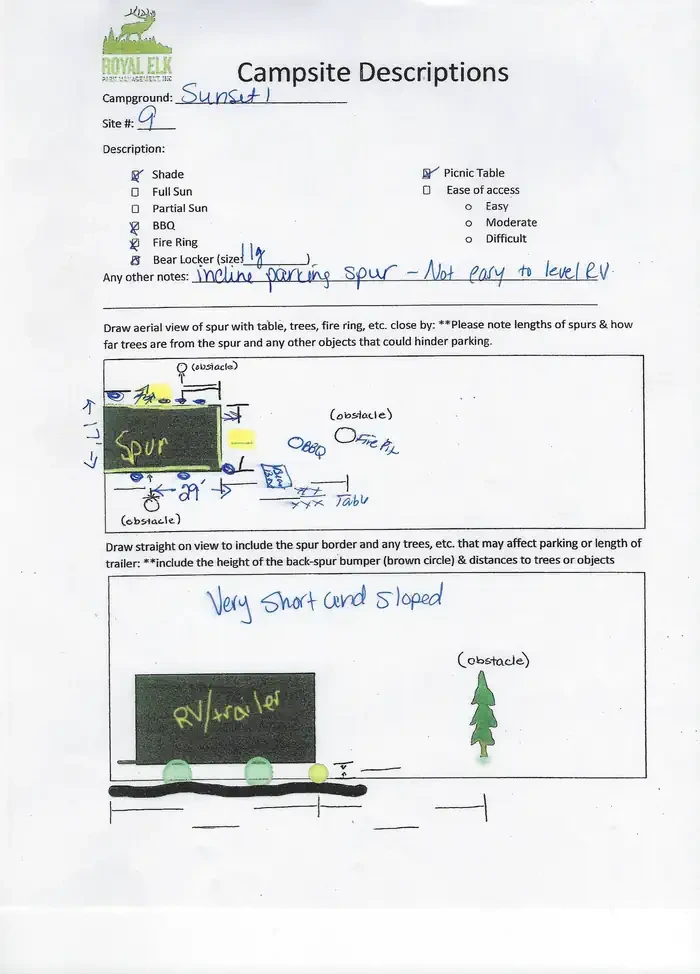 ROYAL ELK
PARK MANAGEMENT, INC
Campsite Descriptions
Campground: Sunset 1
Site #: 9
Description:
Shade
Full Sun
Partial Sun
BBQ
Fire Ring
Bear Locker (size: lg )
Picnic Table
Ease of access
Easy
Moderate
Difficult
Any other notes: incline parking spur - Not easy to level RV.
Draw aerial view of spur with table, trees, fire ring, etc. close by: **Please note lengths of spurs & how
far trees are from the spur and any other objects that could hinder parking.
(obstacle)
17'
Spur
(obstacle)
BBQ
Fire Pit
29'
Table
(obstacle)
Draw straight on view to include the spur border and any trees, etc. that may affect parking or length of
trailer: **include the height of the back-spur bumper (brown circle) & distances to trees or objects
Very short and sloped
(obstacle)
RV/trailer